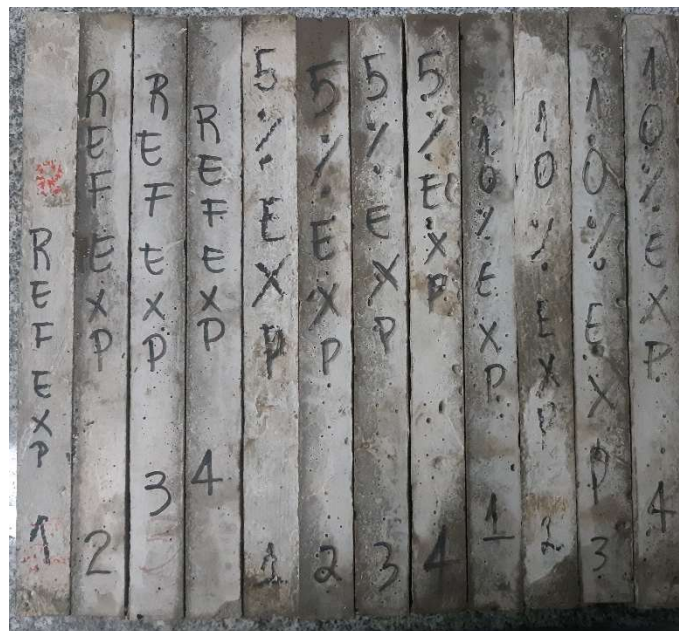 REF EXP 1
REF EXP 2
REF EXP 3
REF EXP 4
5% EXP 1
5% EXP 2
5% EXP 3
5% EXP 4
10% EXP 1
10% EXP 2
10% EXP 3
10% EXP 4